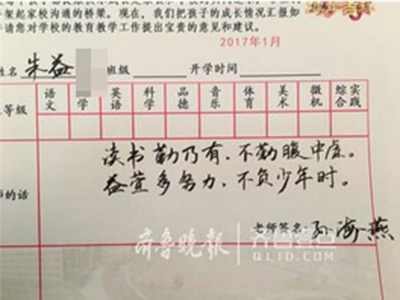 年架起家校沟通的桥梁。现在，我们把孩子的成长情况汇报如
请您对学校的教育教学工作提出宝贵的意见和建议。
2017年1月
姓名 朱益 班级 开学时间
语文 学 英语 科学 品德 音乐 体育 美术 微机 综合实践
等级
读书勤乃有，不勤腹中虚。
益萱多努力，不负少年时。
师的话
老师签名：孙海燕
齐鲁晚报 齐鲁壹点
QLID.COM